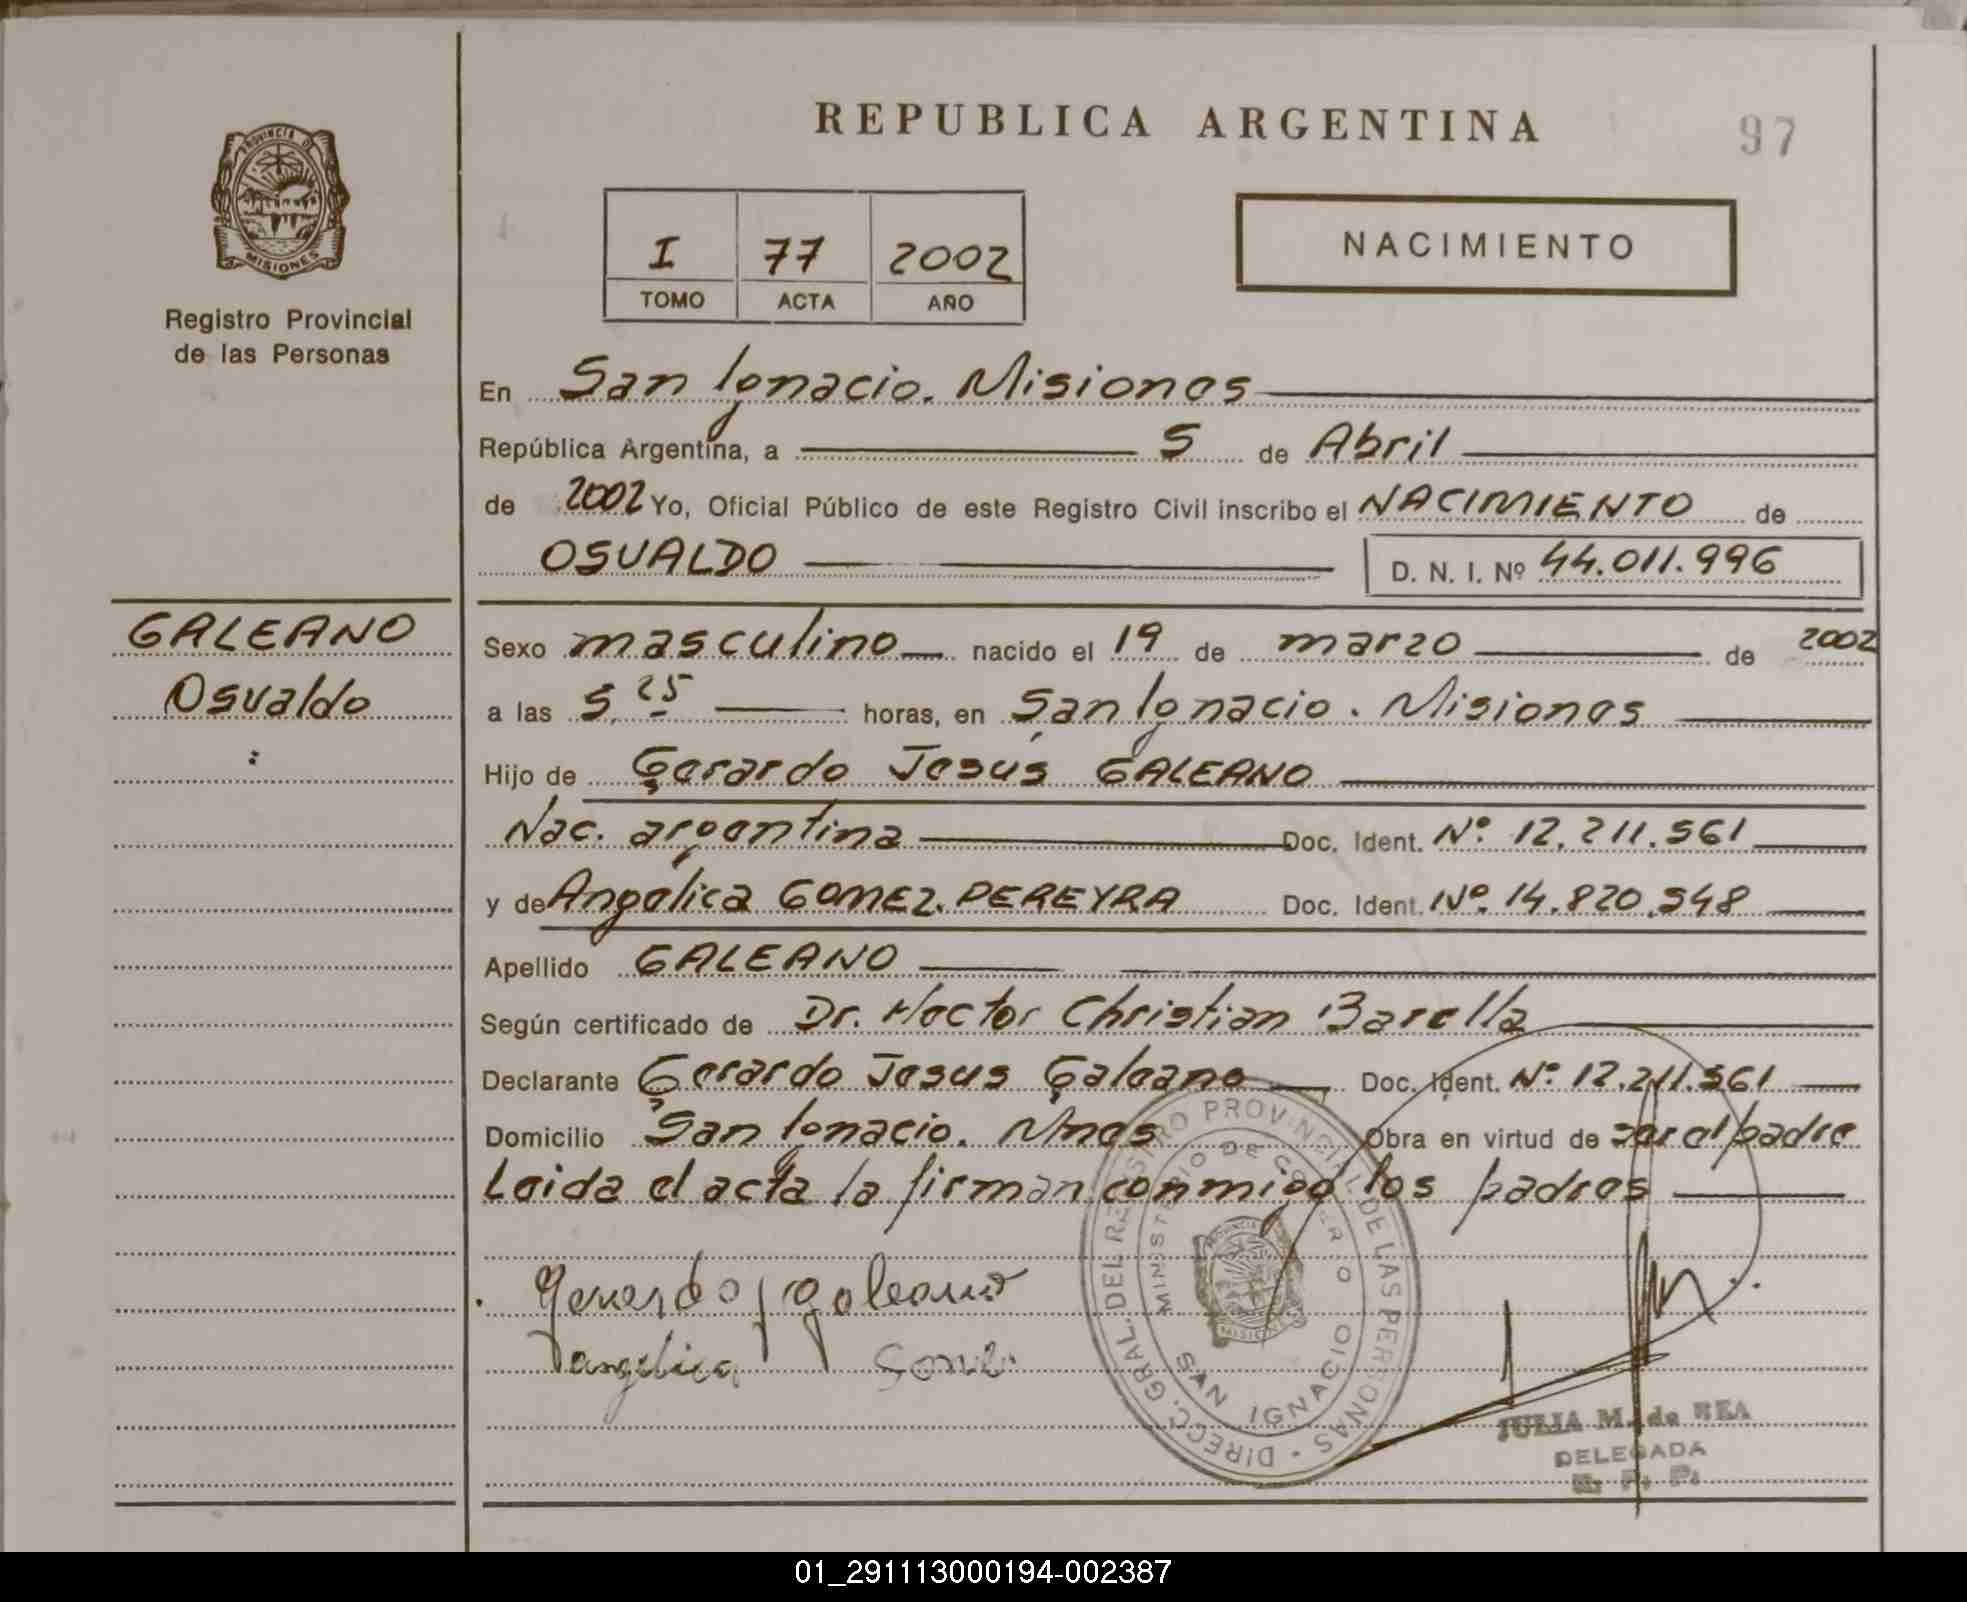 REPUBLICA ARGENTINA
97
PROVINCIA DE
MISIONES
Registro Provincial
de las Personas
I 77 2002
TOMO ACTA AÑO
NACIMIENTO
En San Ignacio. Misiones
República Argentina, a 5 de Abril
de 2002 Yo, Oficial Público de este Registro Civil inscribo el NACIMIENTO de
OSVALDO D. N. I. Nº 44.011.996
GALEANO
Osvaldo
:
Sexo masculino nacido el 19 de marzo de 2002
a las 5,25 horas, en San Ignacio. Misiones
Hijo de Gerardo Jesús GALEANO
Nac. argentina Doc. Ident. Nº 12.211.561
y de Angélica GOMEZ. PEREYRA Doc. Ident. Nº 14.820.548
Apellido GALEANO
Según certificado de Dr. Hector Christian Barella
Declarante Gerardo Jesus Galeano Doc. Ident. Nº 12.211.561
Domicilio San Ignacio. Mnes Obra en virtud de ser el padre
Leida el acta la firman conmigo los padres
Gerardo J galeano
angelica Gome
DIRECC. GRAL. DEL REGISTRO PROVINCIAL DE LAS PERSONAS
MINISTERIO DE GOBIERNO
SAN IGNACIO
JULIA M. de REA
DELEGADA
R. P. P.
01_291113000194-002387